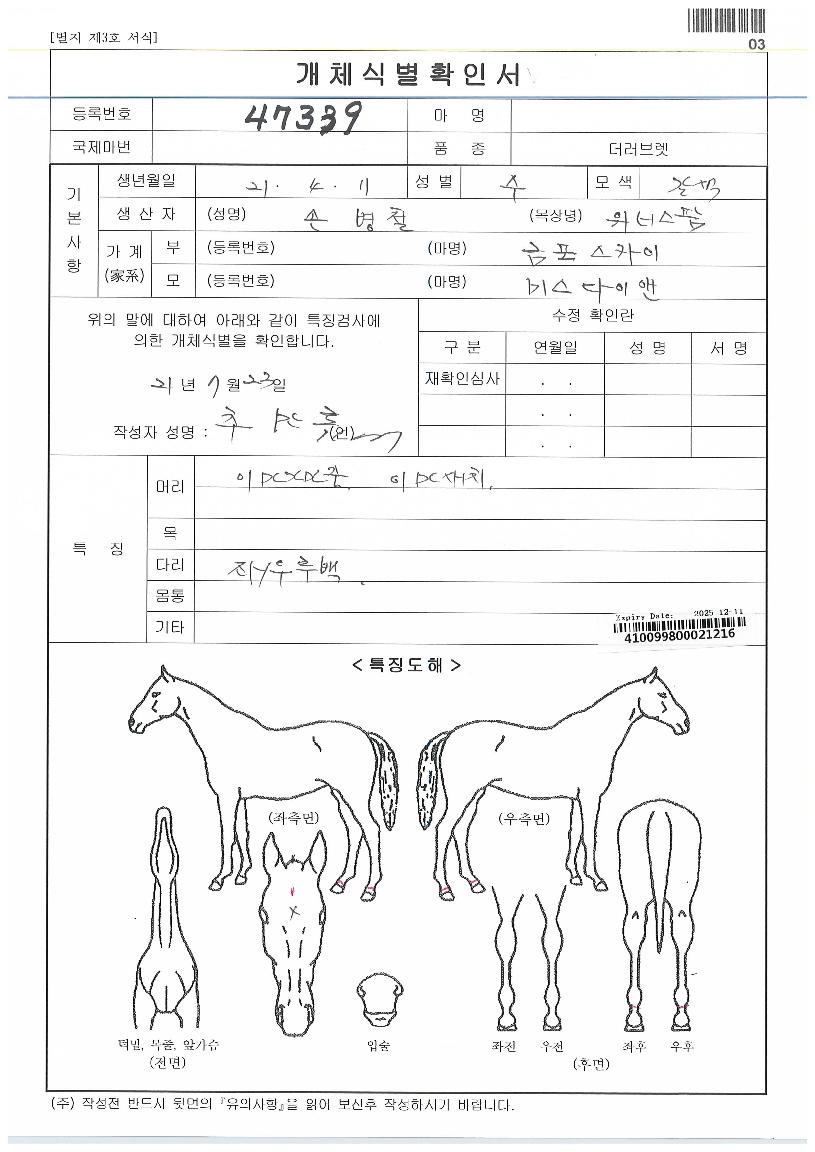 [별지 제3호 서식]
03
개체식별확인서
등록번호 47339 마 명
국제마번 품 종 더러브렛
기본사항
생년월일 21. 4. 11 성별 수 모색 갈색
생산자 (성명) 손병철 (목장명) 위너스팜
가계 (家系) 부 (등록번호) (마명) 금포스카이
모 (등록번호) (마명) 미스다이앤
위의 말에 대하여 아래와 같이 특징검사에
의한 개체식별을 확인합니다.
21년 7월 23일
작성자 성명 : (인)
수정 확인란
구 분 연월일 성 명 서 명
재확인심사 . .
. .
. .
특 징
머리
목
다리 좌우후백.
몸통
기타
Expiry Date: 2025-12-11
410099800021216
< 특징도해 >
(좌측면) (우측면)
턱밑, 목줄, 앞가슴
(전면)
입술
좌전 우전 좌후 우후
(후면)
(주) 작성전 반드시 뒷면의 『유의사항』을 읽어 보신후 작성하시기 바랍니다.